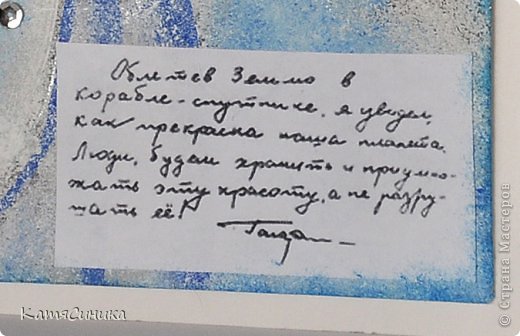 Облетев Землю в
корабле-спутнике, я увидел,
как прекрасна наша планета.
Люди, будем хранить и приумно-
жать эту красоту, а не разру-
шать её!
Гагарин
КатяСиника
© Страна Мастеров